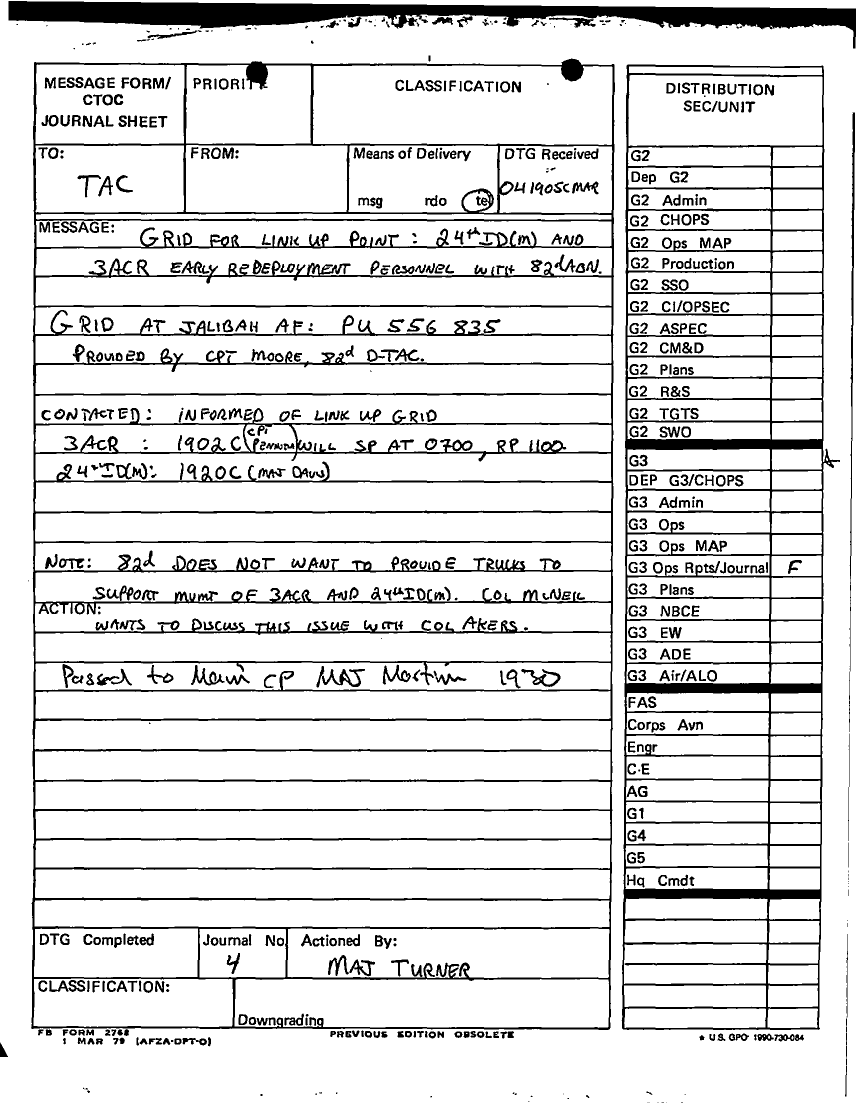 MESSAGE FORM/
CTOC
JOURNAL SHEET
PRIORITY
CLASSIFICATION
TO:
TAC
FROM:
Means of Delivery
msg rdo tel
DTG Received
041905CMAR
MESSAGE:
GRID FOR LINK UP POINT : 24th ID(M) AND
3ACR EARLY REDEPLOYMENT PERSONNEL WITH 82d ABN.
GRID AT JALIBAH AF: PU 556 835
PROVIDED BY CPT MOORE, 82d D-TAC.
CONTACTED: INFORMED OF LINK UP GRID
3ACR : 1902C (CPT ) WILL SP AT 0700, RP 1100
24th ID(M): 1920C (MAJ DAVIS)
NOTE: 82d DOES NOT WANT TO PROVIDE TRUCKS TO
SUPPORT MVMT OF 3ACR AND 24th ID(M). COL McNEIL
ACTION:
WANTS TO DISCUSS THIS ISSUE WITH COL AKERS.
Passed to Main CP MAJ Martin 1930
DTG Completed
Journal No.
4
Actioned By:
MAJ TURNER
CLASSIFICATION:
Downgrading
FB FORM 2768
1 MAR 79 (AFZA-DPT-O)
PREVIOUS EDITION OBSOLETE
DISTRIBUTION
SEC/UNIT
G2
Dep G2
G2 Admin
G2 CHOPS
G2 Ops MAP
G2 Production
G2 SSO
G2 CI/OPSEC
G2 ASPEC
G2 CM&D
G2 Plans
G2 R&S
G2 TGTS
G2 SWO
G3
DEP G3/CHOPS
G3 Admin
G3 Ops
G3 Ops MAP
G3 Ops Rpts/Journal F
G3 Plans
G3 NBCE
G3 EW
G3 ADE
G3 Air/ALO
FAS
Corps Avn
Engr
C-E
AG
G1
G4
G5
Hq Cmdt
★ U.S. GPO: 1990-730-084